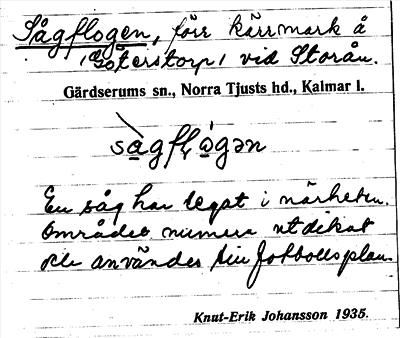 Sågflogen, förr kärrmark å
Götterstorp vid Storån.
Gärdserums sn., Norra Tjusts hd., Kalmar l.
En såg har legat i närheten.
Området numera utdikat
och användes till fotbollsplan.
Knut-Erik Johansson 1935.